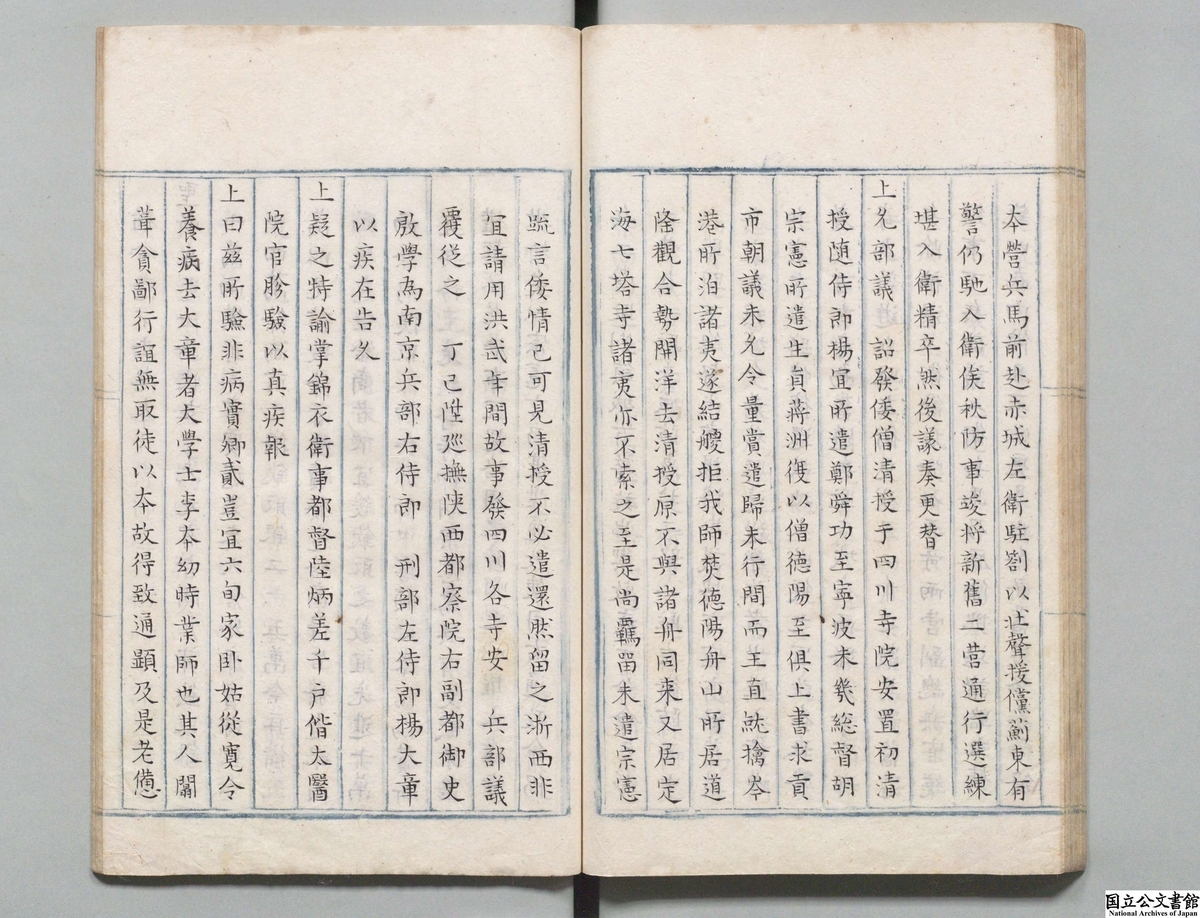 本營兵馬前赴赤城左衛駐劄以壯聲援儻薊東有
警仍馳入衛俟秋防事竣將新舊二營通行選練
堪入衛精卒然後議奏更替
上允部議詔發倭僧清授于四川寺院安置初清
授随侍郎楊宜所遣鄭舜功至寧波未幾總督胡
宗憲所遣生員蔣洲復以僧德陽至俱上書求貢
市朝議未允令量賞遣歸未行間而王直就擒岑
港所泊諸夷遂結艘拒我師焚德陽舟山所居道
隆觀合勢開洋去清授原不與諸舟同来又居定
海七塔寺諸夷亦不索之至是尚羈留未遣宗憲
疏言倭情已可見清授不必遣還然留之浙西非
宜請用洪武年間故事發四川各寺安　兵部議
覆從之　丁巳陞廵撫陝西都察院右副都御史
殷學為南京兵部右侍郎　刑部左侍郎楊大章
以疾在告久
上疑之特諭掌錦衣衛事都督陸炳差千户偕太醫
院官胗驗以真疾報
上曰兹所驗非病實卿貳豈宜六旬家卧姑從寛令
養病去大章者大學士李本幼時業師也其人闒
茸貪鄙行誼無取徒以本故得致通顯及是老憊
国立公文書館
National Archives of Japan